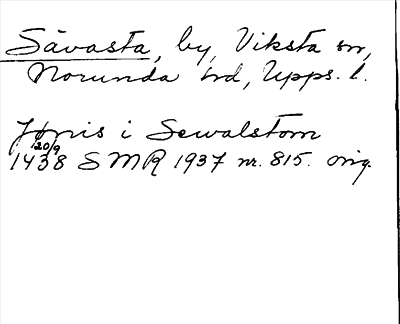 Sävasta, by, Viksta sn,
Norunda hd, Upps. l.
Jönis i Sewalstom
20/9
1438 SMR 1937 nr. 815. orig.